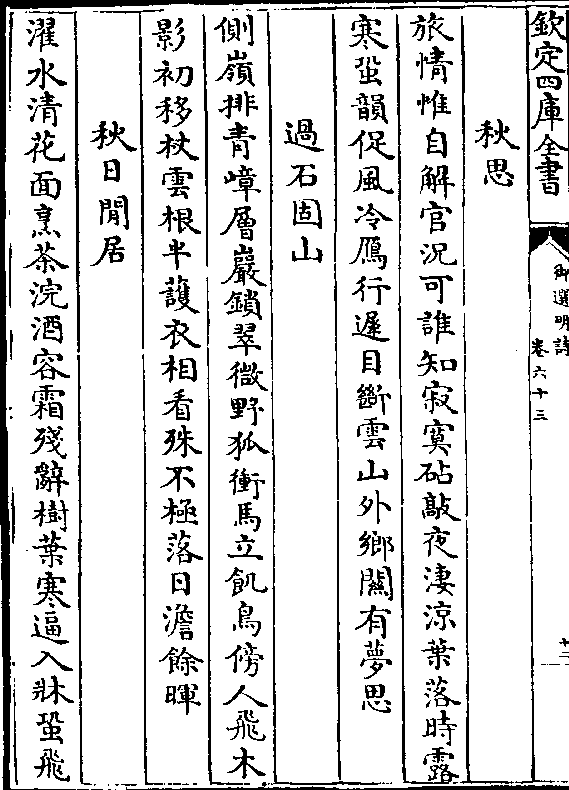 欽定四庫全書
御選明詩
卷六十三
十二
秋思
旅情惟自解官況可誰知寂寞砧敲夜淒涼葉落時露
寒蛩韻促風冷鴈行遲目斷雲山外鄉關有夢思
過石固山
側嶺排青嶂層巖鎖翠微野狐衝馬立飢鳥傍人飛木
影初移杖雲根半護衣相看殊不極落日澹餘暉
秋日閒居
濯水清花面烹茶浣酒容霜殘辭樹葉寒逼入牀蛩飛